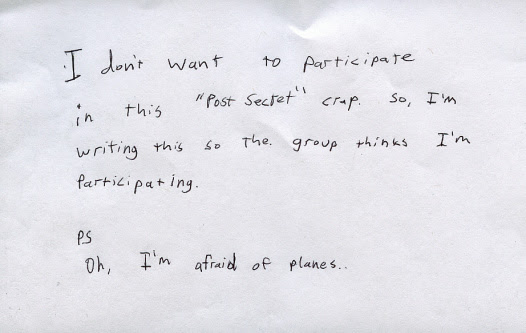 I don't want to participate
in this "Post Secret" crap. So, I'm
writing this so The. group thinks I'm
Participating.
PS
Oh, I'm afraid of planes..